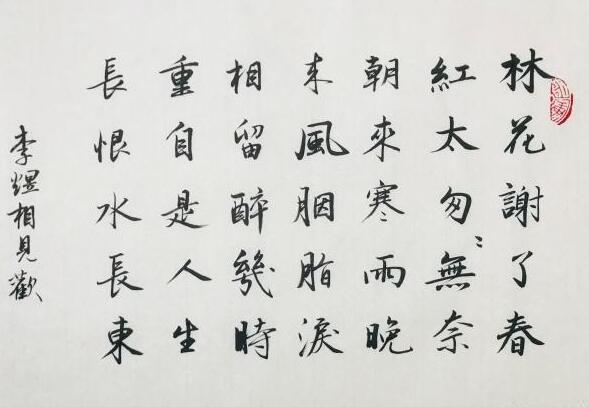 林花謝了春
紅太匆〻無奈
朝來寒雨晚
来風胭脂淚
相留醉幾時
重自是人生
長恨水長東
李煜相見歡